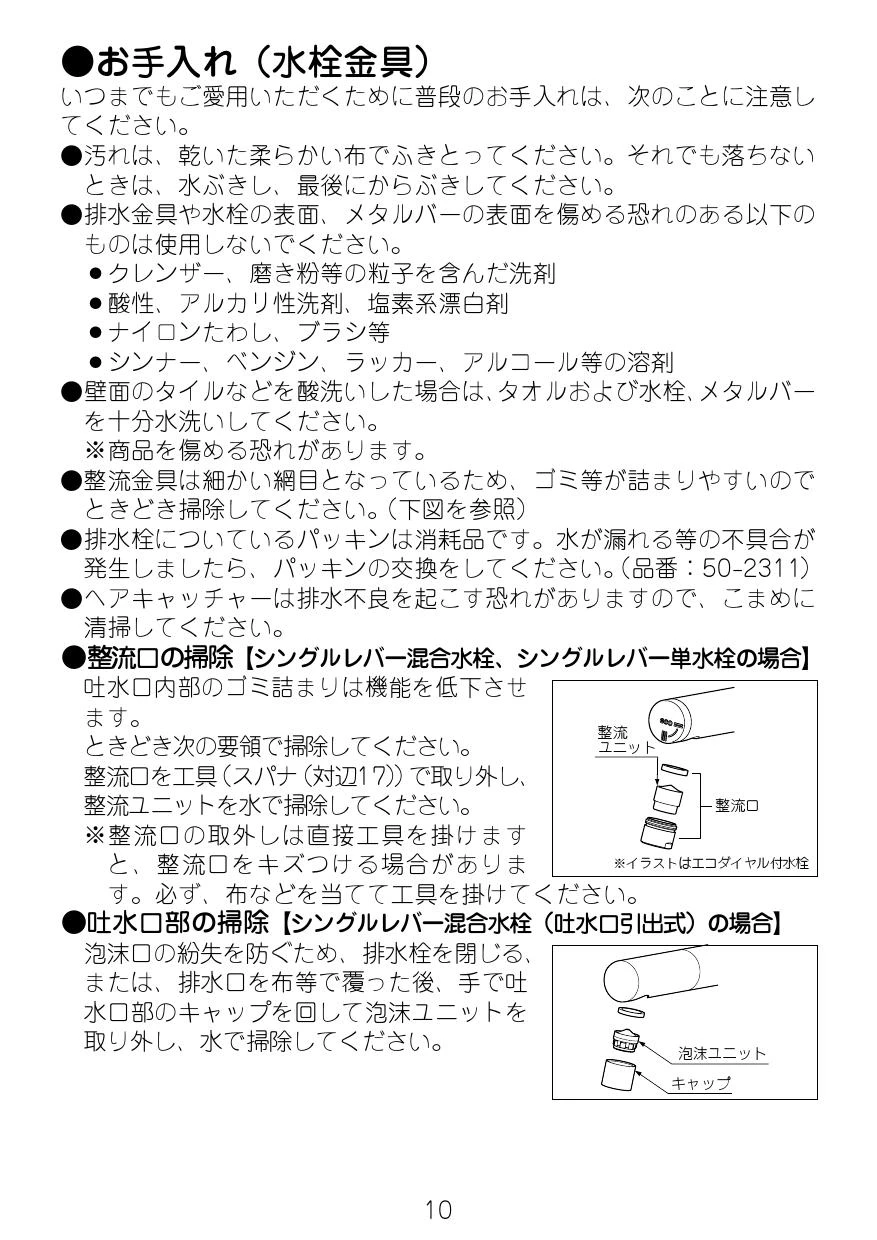 ●お手入れ（水栓金具）
いつまでもご愛用いただくために普段のお手入れは、次のことに注意し
てください。
●汚れは、乾いた柔らかい布でふきとってください。それでも落ちない
ときは、水ぶきし、最後にからぶきしてください。
●排水金具や水栓の表面、メタルバーの表面を傷める恐れのある以下の
ものは使用しないでください。
●クレンザー、磨き粉等の粒子を含んだ洗剤
●酸性、アルカリ性洗剤、塩素系漂白剤
●ナイロンたわし、ブラシ等
●シンナー、ベンジン、ラッカー、アルコール等の溶剤
●壁面のタイルなどを酸洗いした場合は、タオルおよび水栓、メタルバー
を十分水洗いしてください。
※商品を傷める恐れがあります。
●整流金具は細かい網目となっているため、ゴミ等が詰まりやすいので
ときどき掃除してください。（下図を参照）
●排水栓についているパッキンは消耗品です。水が漏れる等の不具合が
発生しましたら、パッキンの交換をしてください。（品番：50-2311）
●ヘアキャッチャーは排水不良を起こす恐れがありますので、こまめに
清掃してください。
●整流口の掃除【シングルレバー混合水栓、シングルレバー単水栓の場合】
吐水口内部のゴミ詰まりは機能を低下させ
ます。
ときどき次の要領で掃除してください。
整流口を工具（スパナ（対辺17））で取り外し、
整流ユニットを水で掃除してください。
※整流口の取外しは直接工具を掛けます
と、整流口をキズつける場合がありま
す。必ず、布などを当てて工具を掛けてください。
整流
ユニット
整流口
※イラストはエコダイヤル付水栓
●吐水口部の掃除【シングルレバー混合水栓（吐水口引出式）の場合】
泡沫口の紛失を防ぐため、排水栓を閉じる、
または、排水口を布等で覆った後、手で吐
水口部のキャップを回して泡沫ユニットを
取り外し、水で掃除してください。
泡沫ユニット
キャップ
10